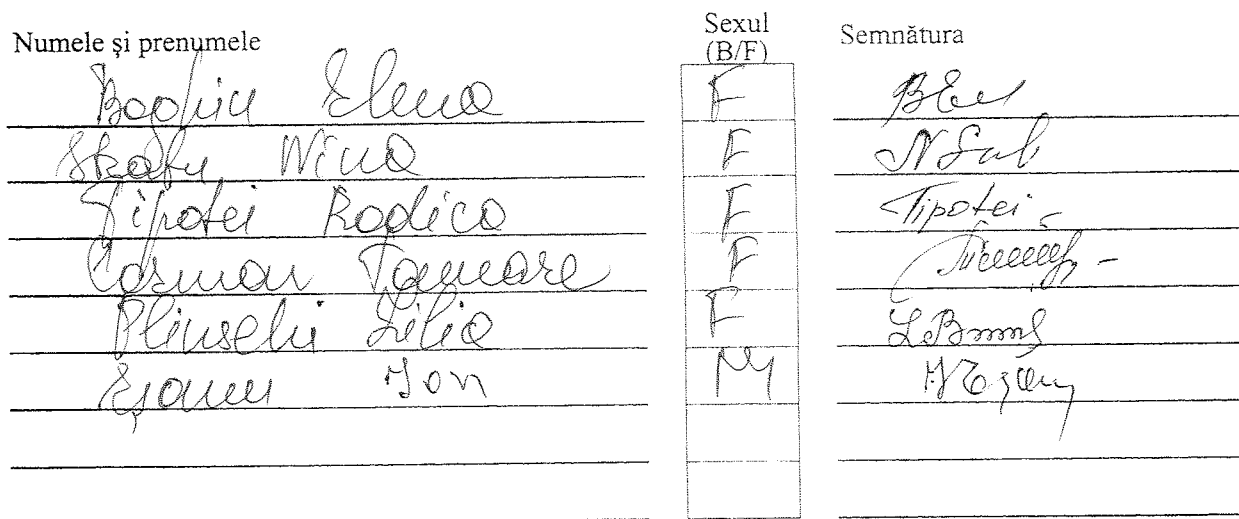 Numele și prenumele Sexul (B/F) Semnătura
Boghiu Elena F
Nina F
Tipotei Rodica F Tipotei
Cosman Tamara F
Plinschi Lilia F
Eșanu Ion M